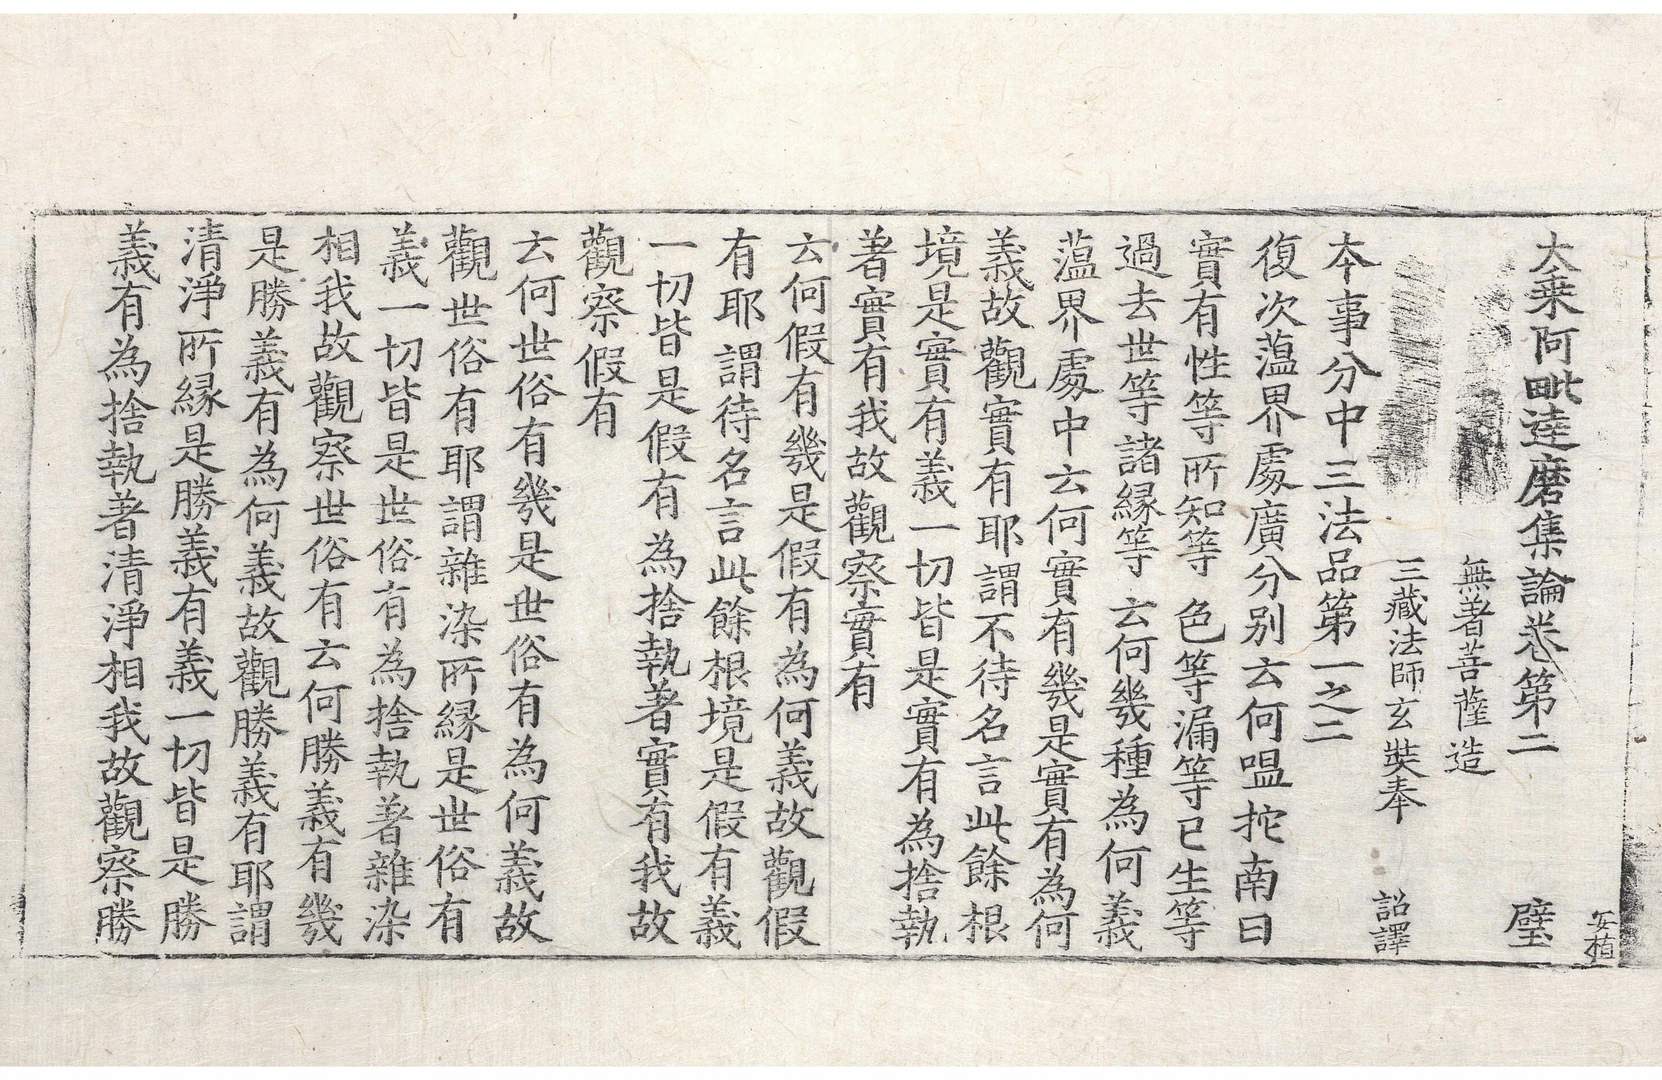 大乘阿毗達磨集論卷第二 璧
安植
無著菩薩造
三藏法師玄奘奉 詔譯
本事分中三法品第一之二
復次薀界處廣分別云何嗢拕南曰
實有性等所知等 色等漏等已生等
過去世等諸緣等 云何幾種為何義
薀界處中云何實有幾是實有為何
義故觀實有耶謂不待名言此餘根
境是實有義一切皆是實有為捨執
著實有我故觀察實有
云何假有幾是假有為何義故觀假
有耶謂待名言此餘根境是假有義
一切皆是假有為捨執著實有我故
觀察假有
云何世俗有幾是世俗有為何義故
觀世俗有耶謂雜染所緣是世俗有
義一切皆是世俗有為捨執著雜染
相我故觀察世俗有云何勝義有幾
是勝義有為何義故觀勝義有耶謂
清淨所緣是勝義有義一切皆是勝
義有為捨執著清淨相我故觀察勝